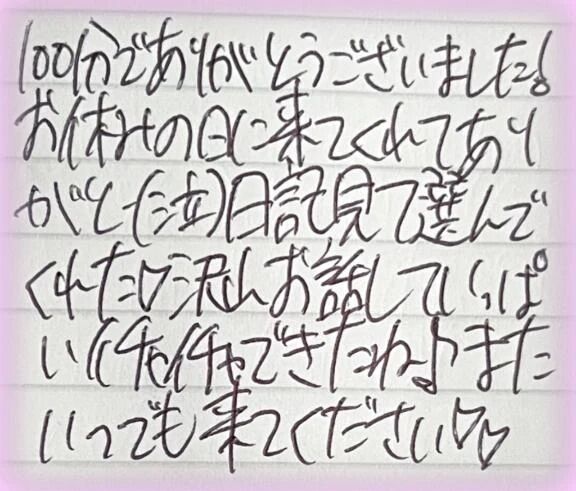 100分でありがとうございました!
お休みの日に来てくれてあり
がと(泣)日記見て選んで
くれた♡沢山お話していっぱ
いイチャイチャできたね♪また
いつでも来てください♡♡